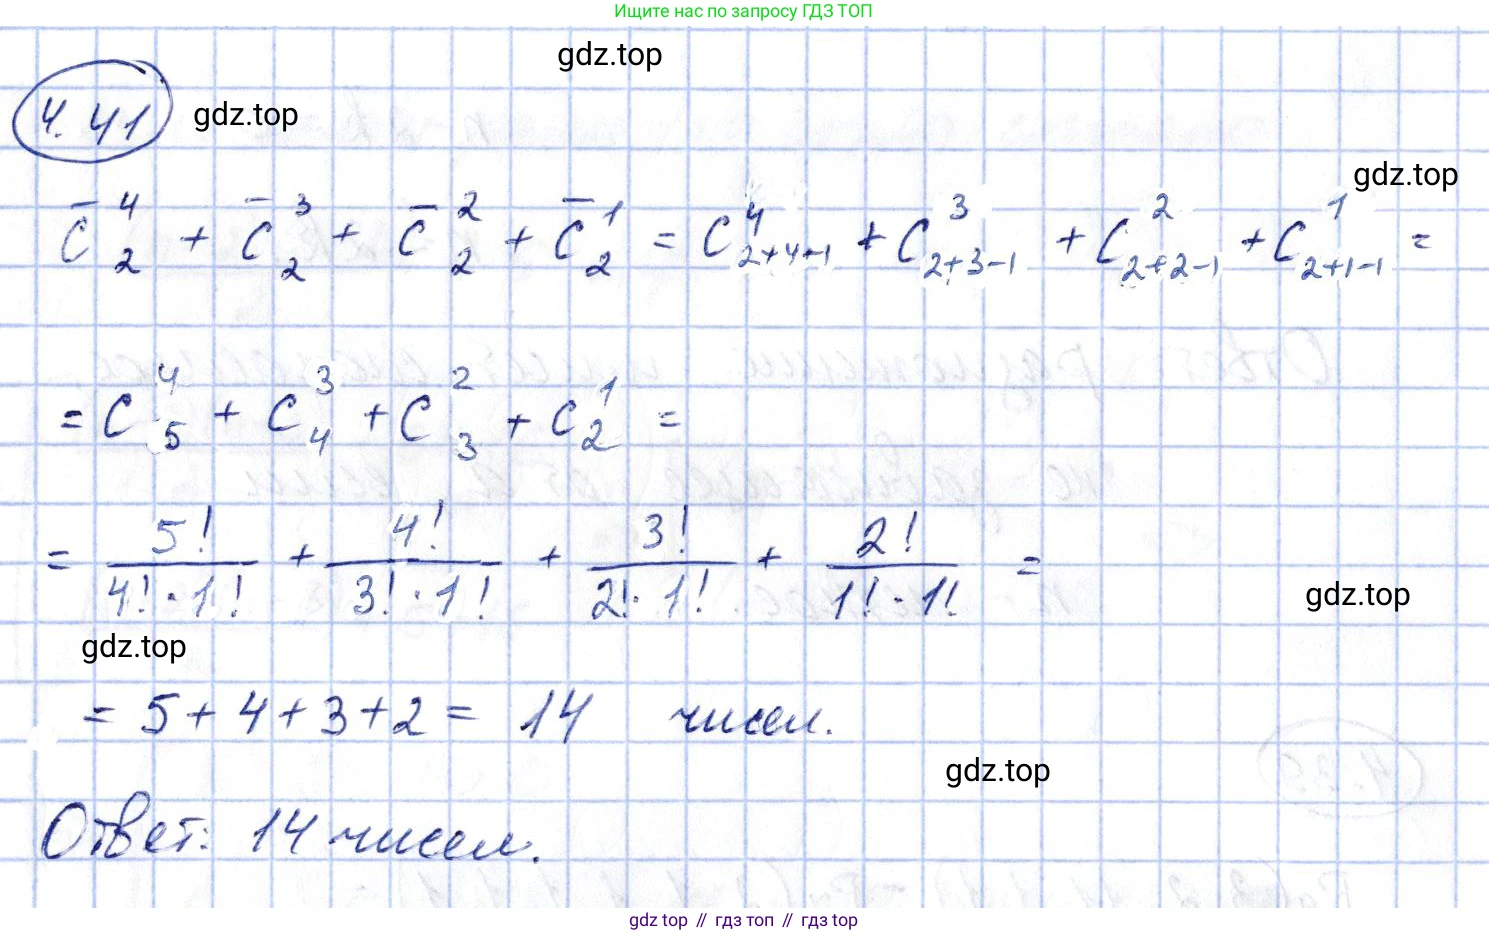 Ищите нас по запросу ГДЗ ТОП
gdz.top
4.41 gdz.top
gdz.top
C̄₂⁴ + C̄₂³ + C̄₂² + C̄₂¹ = C⁴₂₊₄₋₁ + C³₂₊₃₋₁ + C²₂₊₂₋₁ + C¹₂₊₁₋₁ =
= C₅⁴ + C₄³ + C₃² + C₂¹ =
= 5!/(4!·1!) + 4!/(3!·1!) + 3!/(2!·1!) + 2!/(1!·1!) =
gdz.top
gdz.top
= 5 + 4 + 3 + 2 = 14 чисел.
gdz.top
Ответ: 14 чисел.
gdz top // гдз топ // gdz top